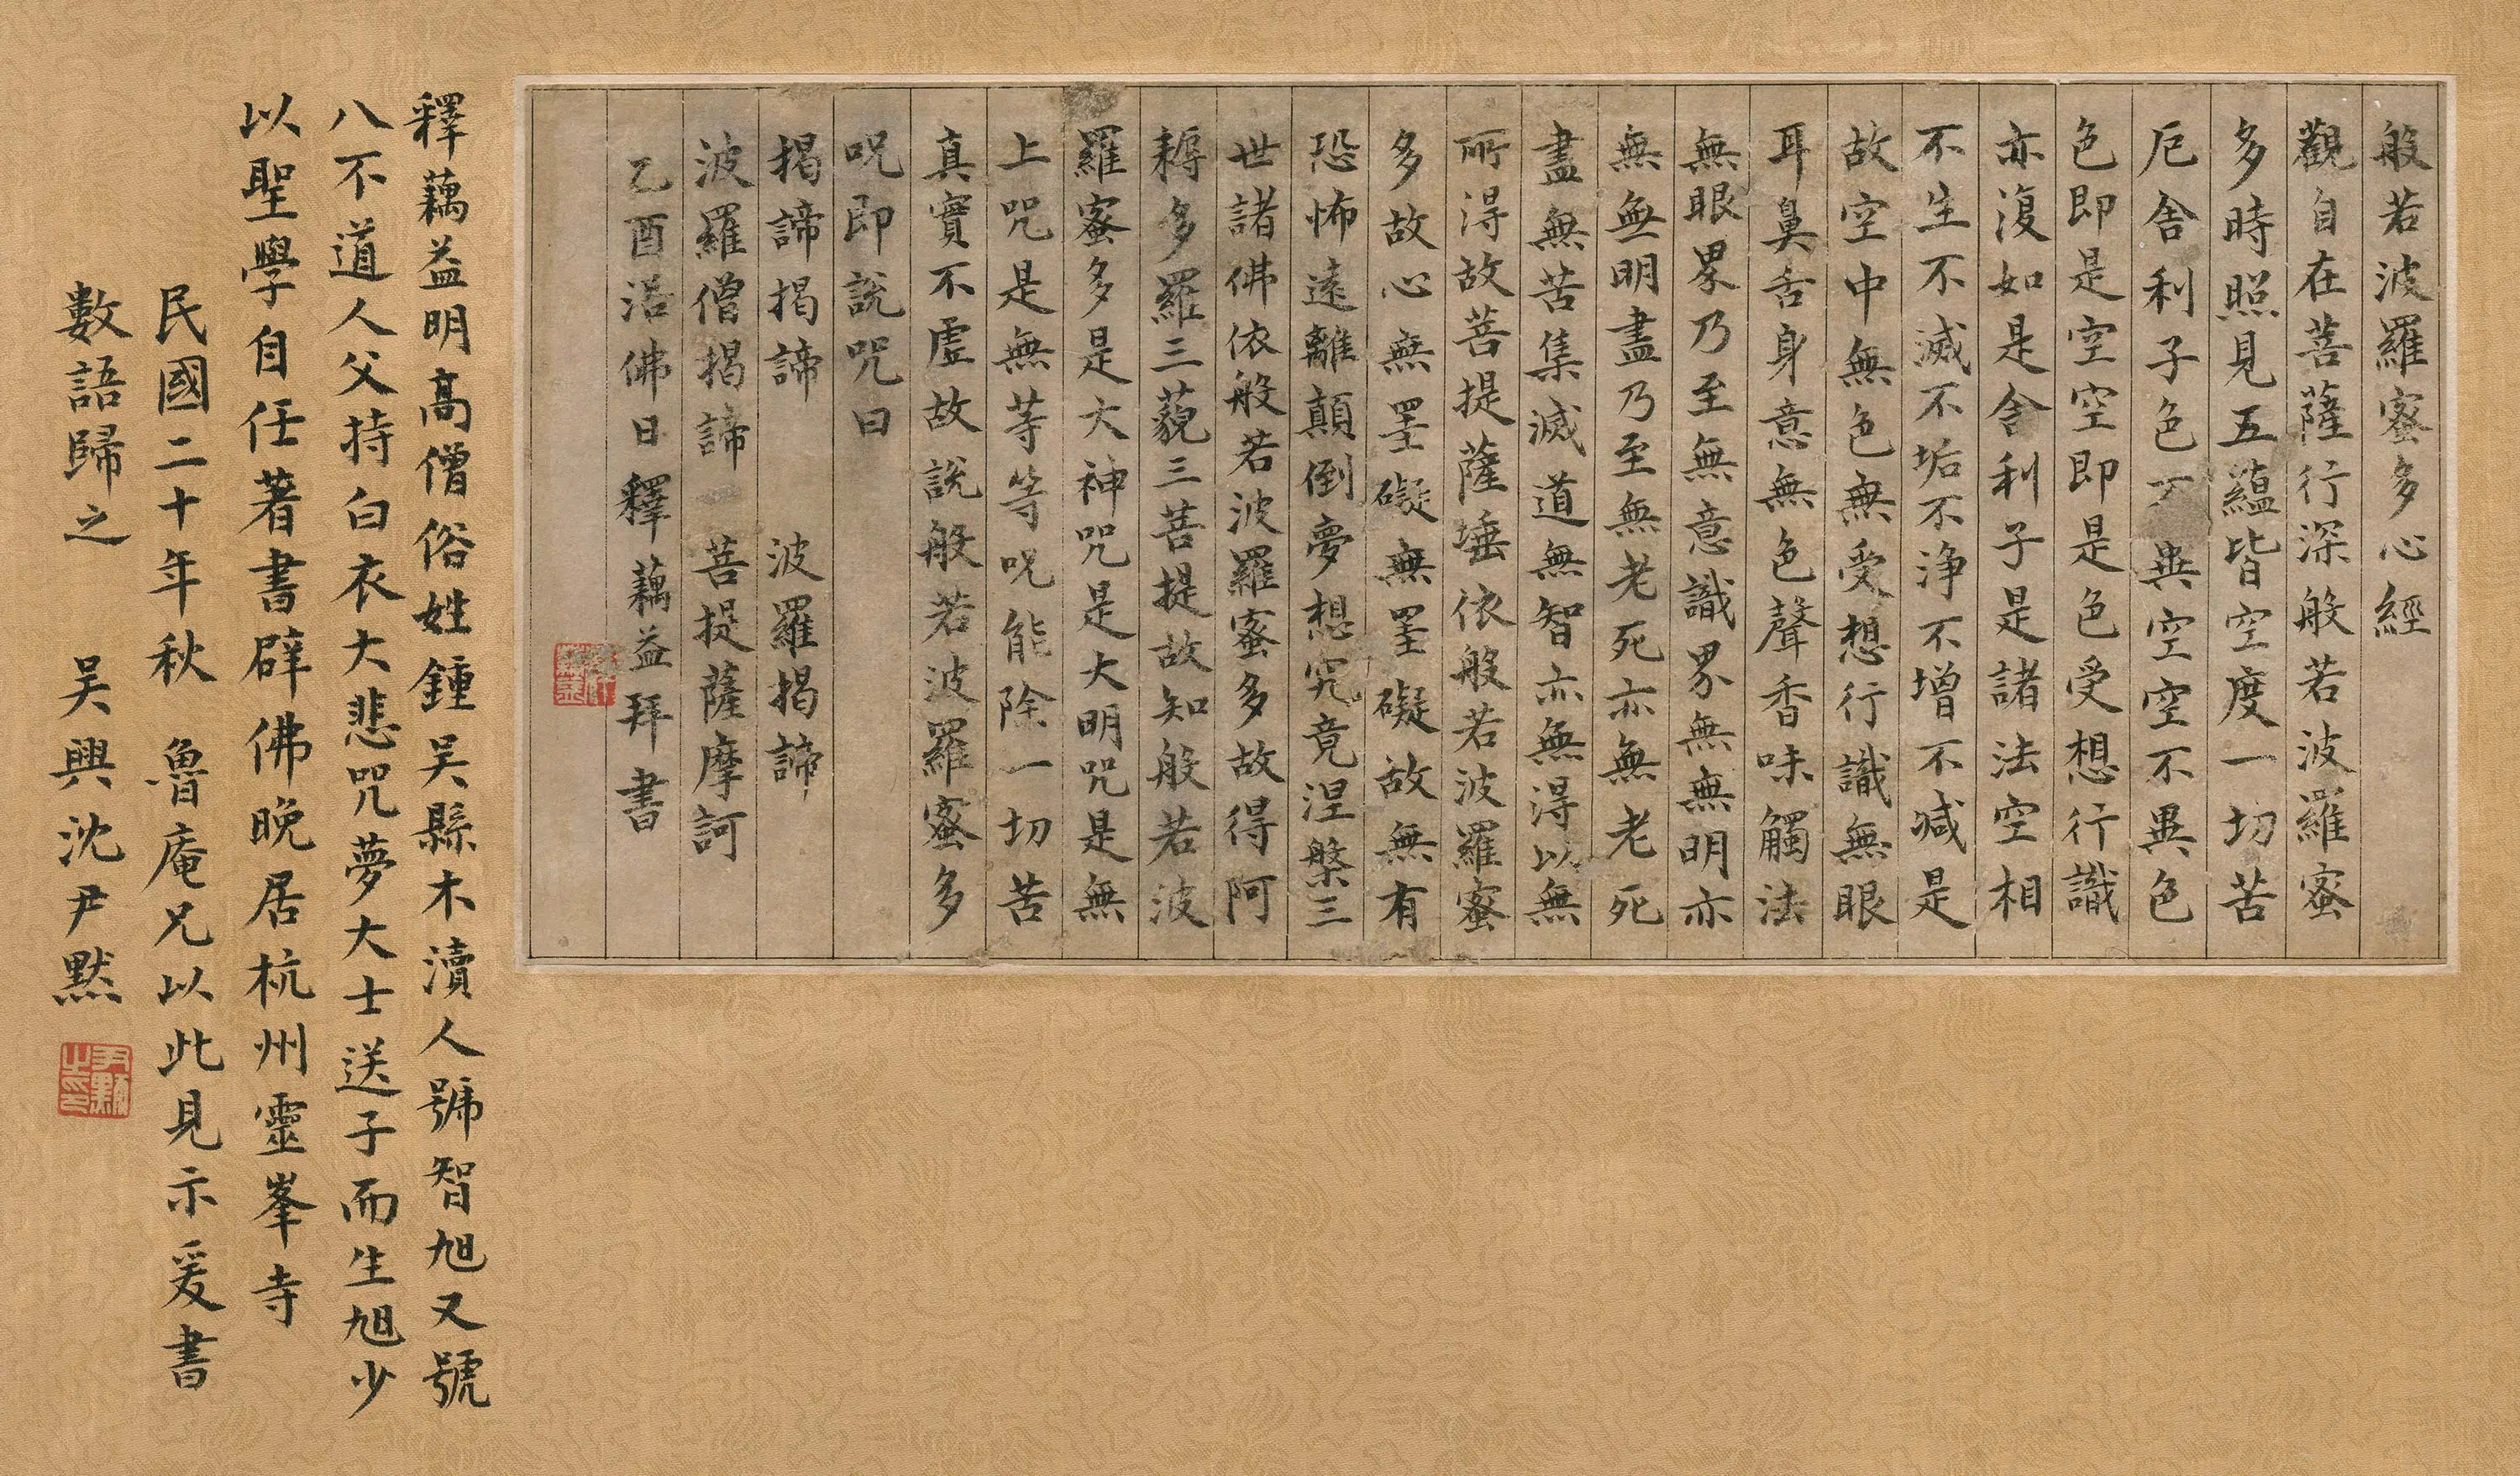 般若波羅蜜多心經
觀自在菩薩行深般若波羅蜜
多時照見五蘊皆空度一切苦
厄舍利子色不異空空不異色
色即是空空即是色受想行識
亦復如是舍利子是諸法空相
不生不滅不垢不淨不增不減是
故空中無色無受想行識無眼
耳鼻舌身意無色聲香味觸法
無眼界乃至無意識界無無明亦
無無明盡乃至無老死亦無老死
盡無苦集滅道無智亦無得以無
所得故菩提薩埵依般若波羅蜜
多故心無罣礙無罣礙故無有
恐怖遠離顛倒夢想究竟涅槃三
世諸佛依般若波羅蜜多故得阿
耨多羅三藐三菩提故知般若波
羅蜜多是大神咒是大明咒是無
上咒是無等等咒能除一切苦
真實不虛故說般若波羅蜜多
咒即說咒曰
揭諦揭諦 波羅揭諦
波羅僧揭諦 菩提薩摩訶
乙酉浴佛日釋藕益拜書
釋藕益明高僧俗姓鍾吳縣木瀆人號智旭又號
八不道人父持白衣大悲咒夢大士送子而生旭少
以聖學自任著書辟佛晚居杭州靈峯寺
民國二十年秋 魯庵兄以此見示爰書
數語歸之 吳興沈尹默
尹默之印